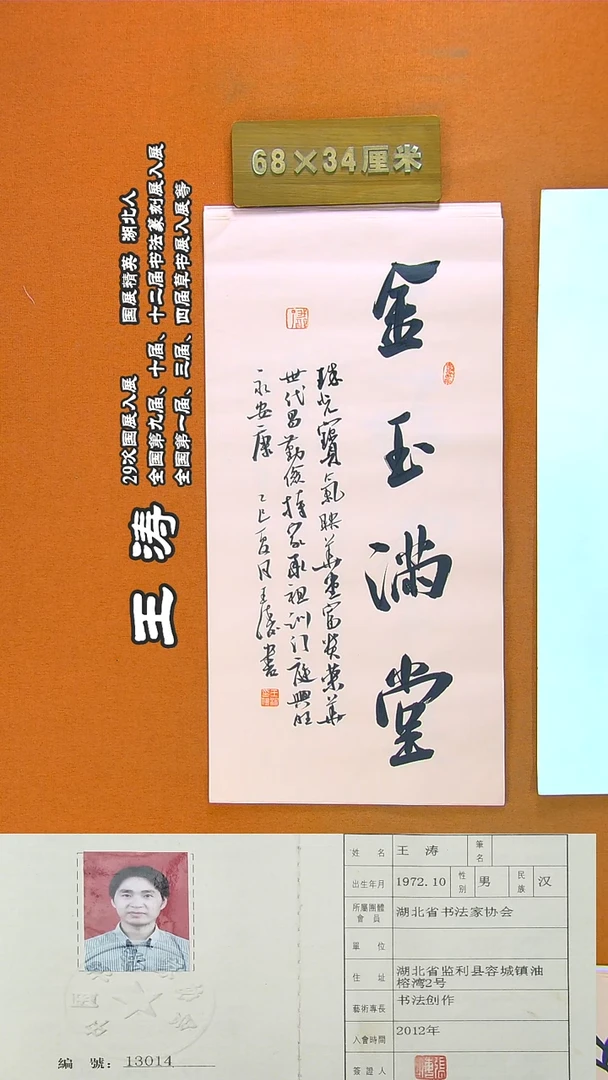 68×34厘米
王涛
29次国展入展 国展精英 湖北人
全国第九届、十届、十二届书法篆刻展入展
全国第一届、三届、四届草书展入展等
金玉满堂
珠光寶氣映華堂富贵荣华
世代昌勤俭持家承祖训门庭興旺
永安康 乙巳夏月王涛書
姓名 王 涛 筆名
出生年月 1972.10 性別 男 民族 汉
所屬團體會員 湖北省书法家协会
單位
住址 湖北省监利县容城镇油
榕湾2号
藝術專長 书法创作
入會時間 2012年
簽證人
編號：13014